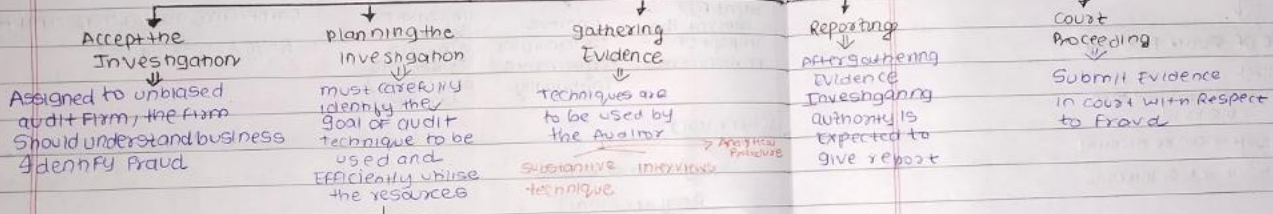 Accept the
Investigation
Assigned to unbiased
audit Firm, the firm
Should understand business
Identify Fraud
planning the
investigation
must carefully
identify the
goal of audit
technique to be
used and
Efficiently utilise
the resources
gathering
Evidence
Techniques are
to be used by
the Auditor
Substantive interviews
technique
Analytical
Procedure
Reporting
After gathering
Evidence
Investigating
authority is
Expected to
give report
Court
Proceeding
Submit Evidence
in court with Respect
to fraud